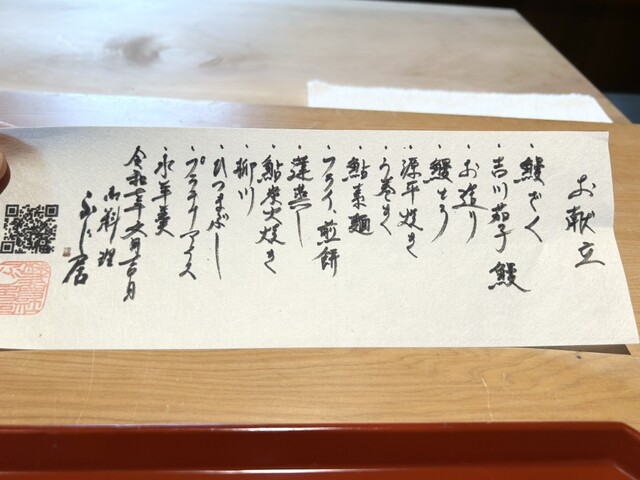 お献立
・鰻ざく
・吉川茄子 鰻
・お造り
・鰻とろ
・源平焼き
・う巻き
・鮎素麺
・フライ 煎餅
・蓮蒸し
・鮎炭火焼き
・柳川
・ひつまぶし
・プラチナアイス
・水羊羹
令和二年六月吉日
御料理
ふじ居